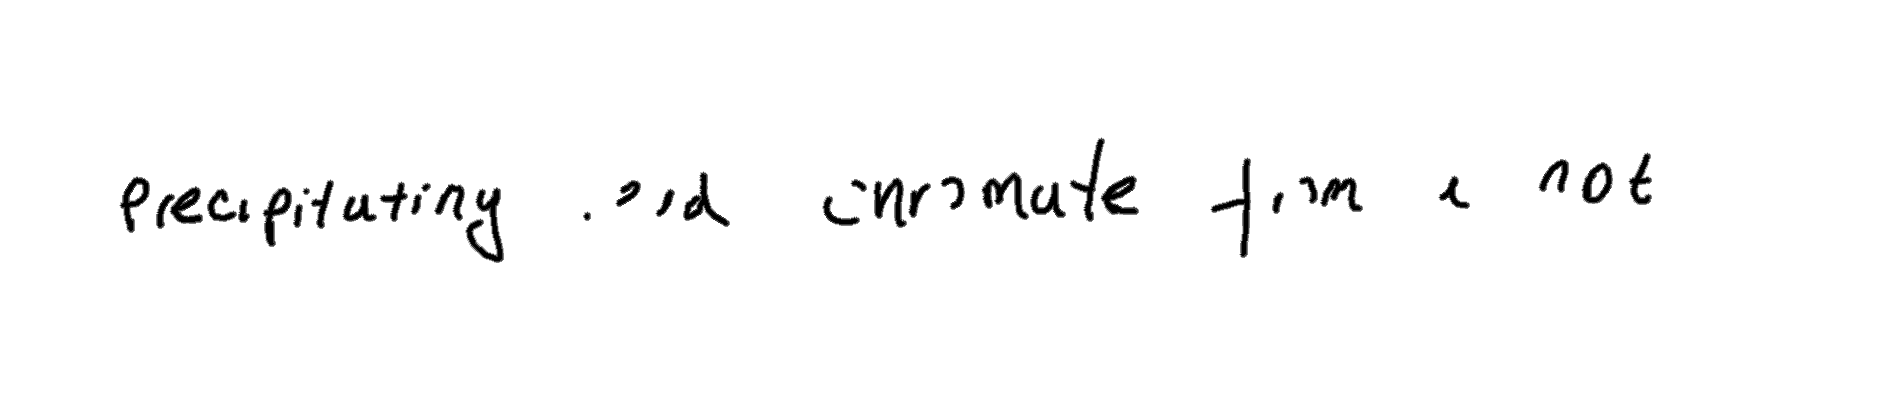 precipitating chromate from a not